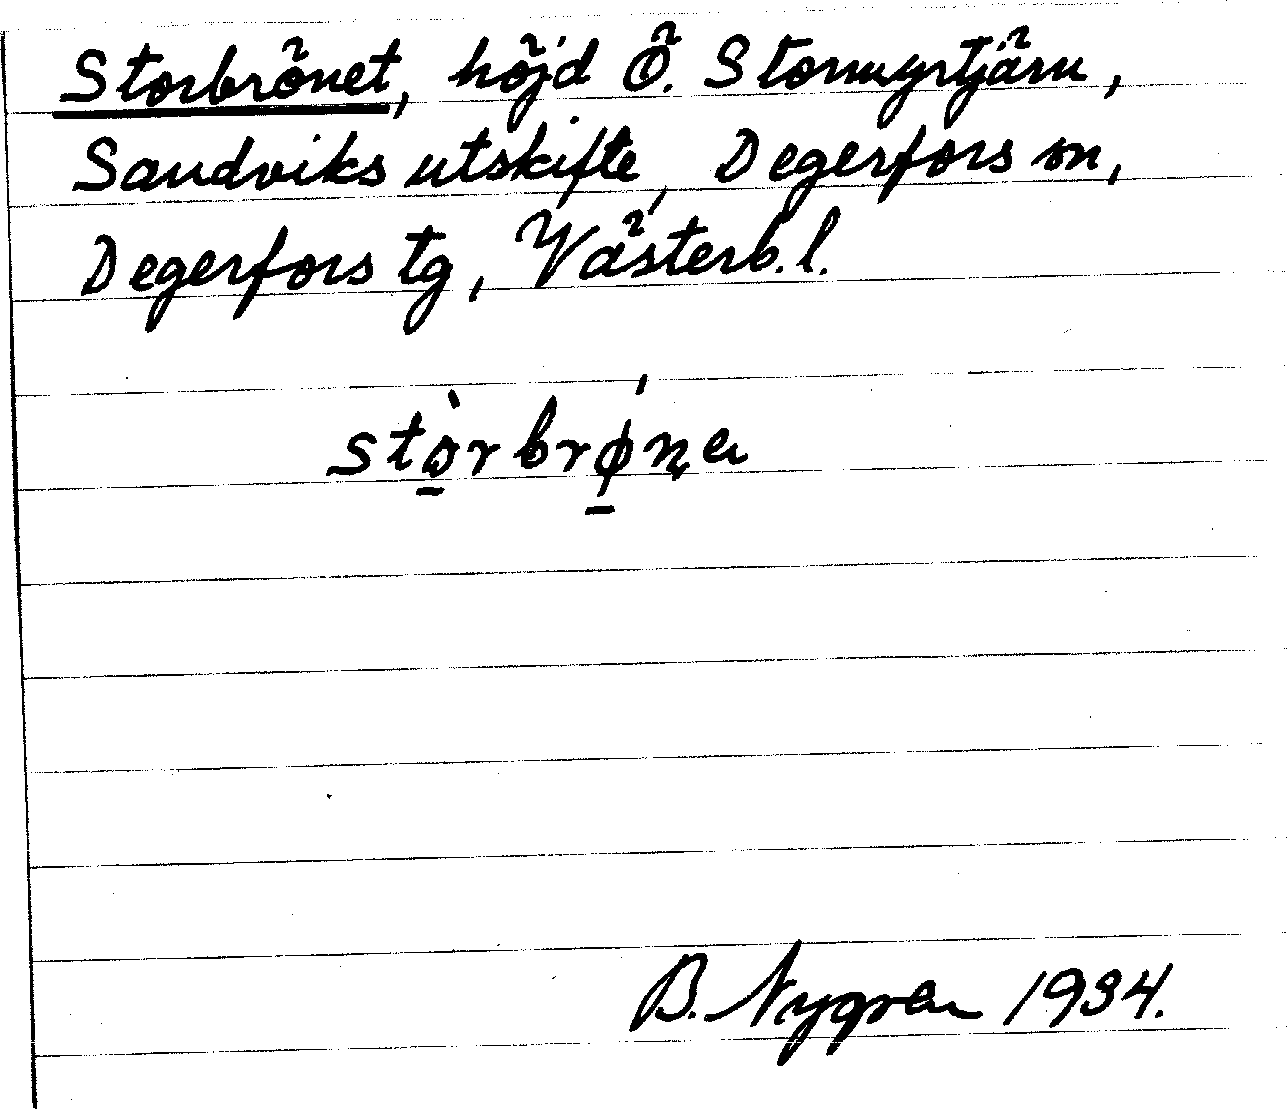 Storbrönet, höjd Ö. Stormyrtjärn,
Sandviks utskifte, Degerfors sn,
Degerfors tg, Västerb.l.
stò̱rbrǿ̱ṇa
B. Nygren 1934.